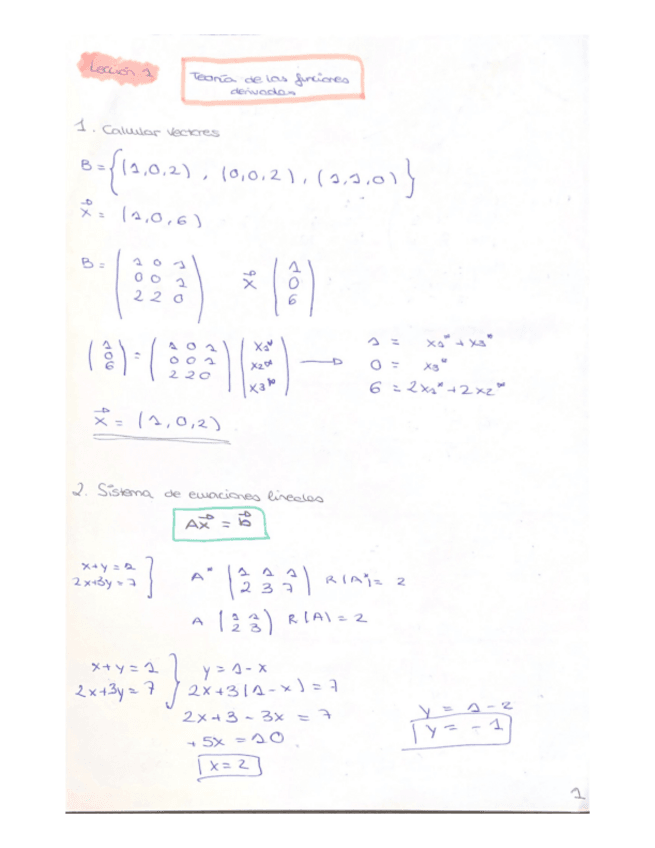 Lección 1
Teoría de las funciones
derivadas
1. Calcular vectores
B = {(1,0,2), (0,0,2), (1,1,0)}
x⃗ = (1,0,6)
B = ( 1 0 1
0 0 1
2 2 0 )
x⃗ ( 1
0
6 )
( 1
0
6 ) = ( 1 0 1
0 0 1
2 2 0 ) ( x1*
x2*
x3* ) →
1 = x1* + x3*
0 = x3*
6 = 2x1* + 2x2*
x⃗ = (1,0,2)
2. Sistema de ecuaciones lineales
Ax⃗ = b⃗
x+y = 1
2x+3y = 7
A* ( 1 1 1
2 3 7 ) R(A*) = 2
A ( 1 1
2 3 ) R(A) = 2
x+y = 1
2x+3y = 7
y = 1-x
2x+3(1-x) = 7
2x+3-3x = 7
+5x = 10
x = 2
y = 1-2
y = -1
1